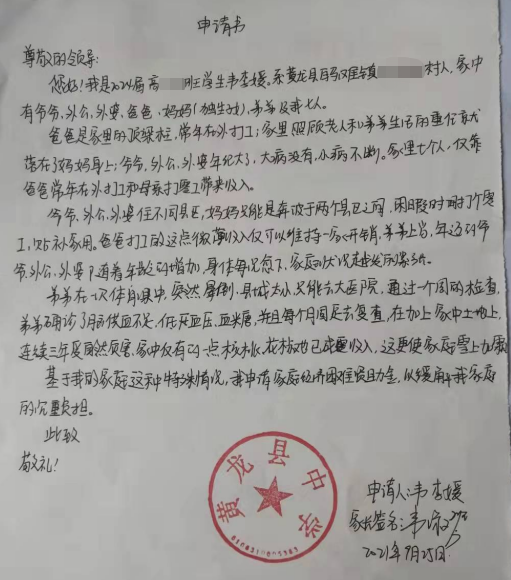 申请书
尊敬的领导:
您好!我是2024届高 班学生韦李媛。系黄龙县 镇 村人,家中
有爷爷、外公、外婆、爸爸、妈妈(独生女)、弟弟及我七人。
爸爸是家里的顶梁柱,常年在外打工;家里照顾老人和弟弟生活的重任就
落在了妈妈身上;爷爷、外公、外婆年纪大了,大病没有,小病不断。家里七个人,仅靠
爸爸常年在外打工和母亲打零工带来收入。
爷爷、外公、外婆住不同县区,妈妈只能是奔波于两个县区之间,闲暇时间打个零
工,贴补家用。爸爸打工的这点微薄收入仅可以维持一家开销,弟弟上学,年迈的爷
爷、外公、外婆随着年龄的增加,身体每况愈下,家庭的状况越发的紧张。
弟弟在一次体育课中,突然晕倒,县城太小只能去大医院,通过一个周的检查,
弟弟确诊了脑供血不足,低血压,低血糖,并且每个月固定去复查,在加上家中土地上,
连续三年受自然灾害,家中仅有的一点核桃、花椒也已没有收入,这更使家庭雪上加霜。
基于我的家庭这种特殊情况,我申请家庭经济困难资助金,以缓解我家庭
的沉重负担。
此致
敬礼!
黄龙县中学
申请人:韦李媛
家长签名:韦
2021年9月25日